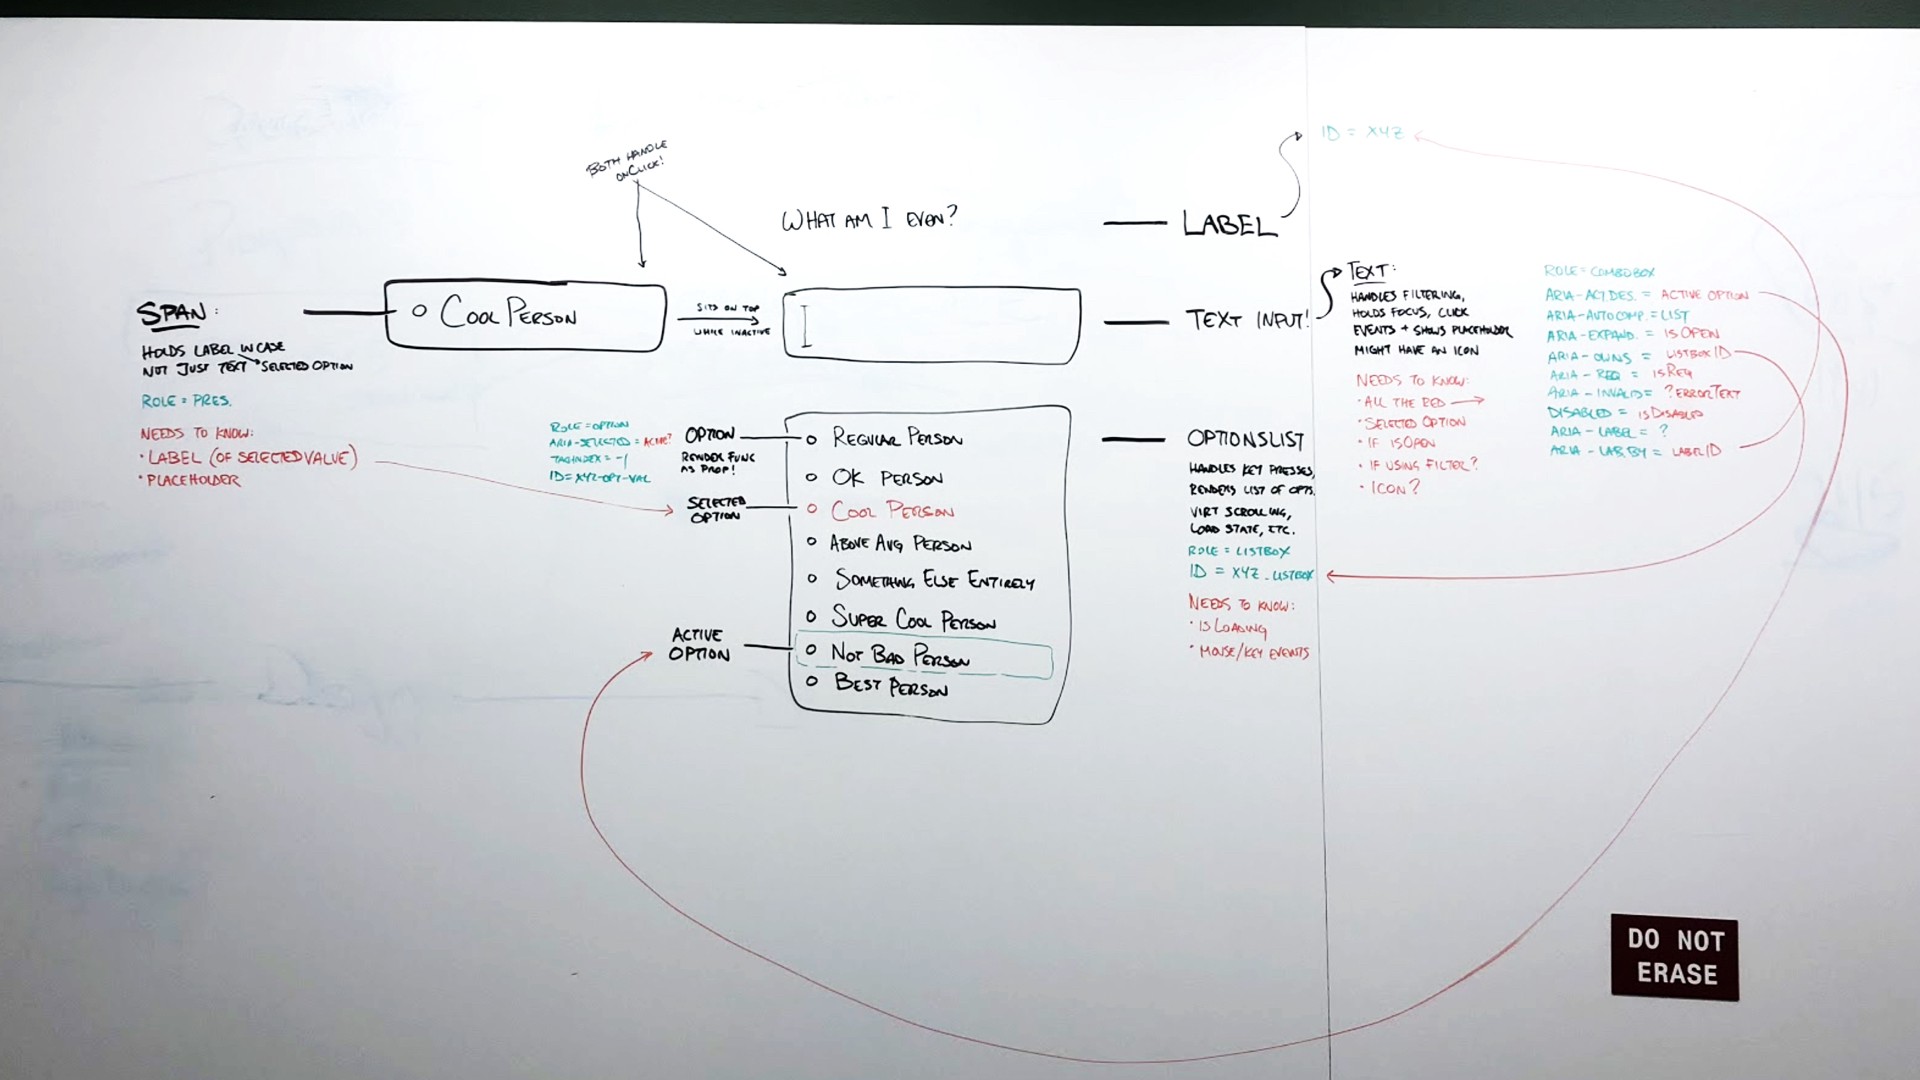 BOTH HANDLE
ONCLICK!
WHAT AM I EVEN?
LABEL
ID = XYZ
SPAN:
HOLDS LABEL IN CASE
NOT JUST TEXT
SELECTED OPTION
ROLE = PRES.
NEEDS TO KNOW:
• LABEL (OF SELECTED VALUE)
• PLACEHOLDER
COOL PERSON
SITS ON TOP
WHILE INACTIVE
TEXT INPUT!
TEXT:
HANDLES FILTERING,
HOLDS FOCUS, CLICK
EVENTS + SHOWS PLACEHOLDER
MIGHT HAVE AN ICON
NEEDS TO KNOW:
• ALL THE RED
• SELECTED OPTION
• IF ISOPEN
• IF USING FILTER?
• ICON?
ROLE = COMBOBOX
ARIA-ACT.DES. = ACTIVE OPTION
ARIA-AUTOCOMP. = LIST
ARIA-EXPAND. = ISOPEN
ARIA-OWNS = LISTBOX ID
ARIA-REQ = ISREQ
ARIA-INVALID = ?ERRORTEXT
DISABLED = ISDISABLED
ARIA-LABEL = ?
ARIA-LAB.BY = LABELID
ROLE = OPTION
ARIA-SELECTED = ACTIVE?
TABINDEX = -1
ID = XYZ-OPT-VAL
OPTION
RENDER FUNC
AS PROP!
SELECTED
OPTION
ACTIVE
OPTION
REGULAR PERSON
OK PERSON
COOL PERSON
ABOVE AVG PERSON
SOMETHING ELSE ENTIRELY
SUPER COOL PERSON
NOT BAD PERSON
BEST PERSON
OPTIONSLIST
HANDLES KEY PRESSES,
RENDERS LIST OF OPTS.
VIRT SCROLLING,
LOAD STATE, ETC.
ROLE = LISTBOX
ID = XYZ-LISTBOX
NEEDS TO KNOW:
• IS LOADING
• MOUSE/KEY EVENTS
DO NOT
ERASE